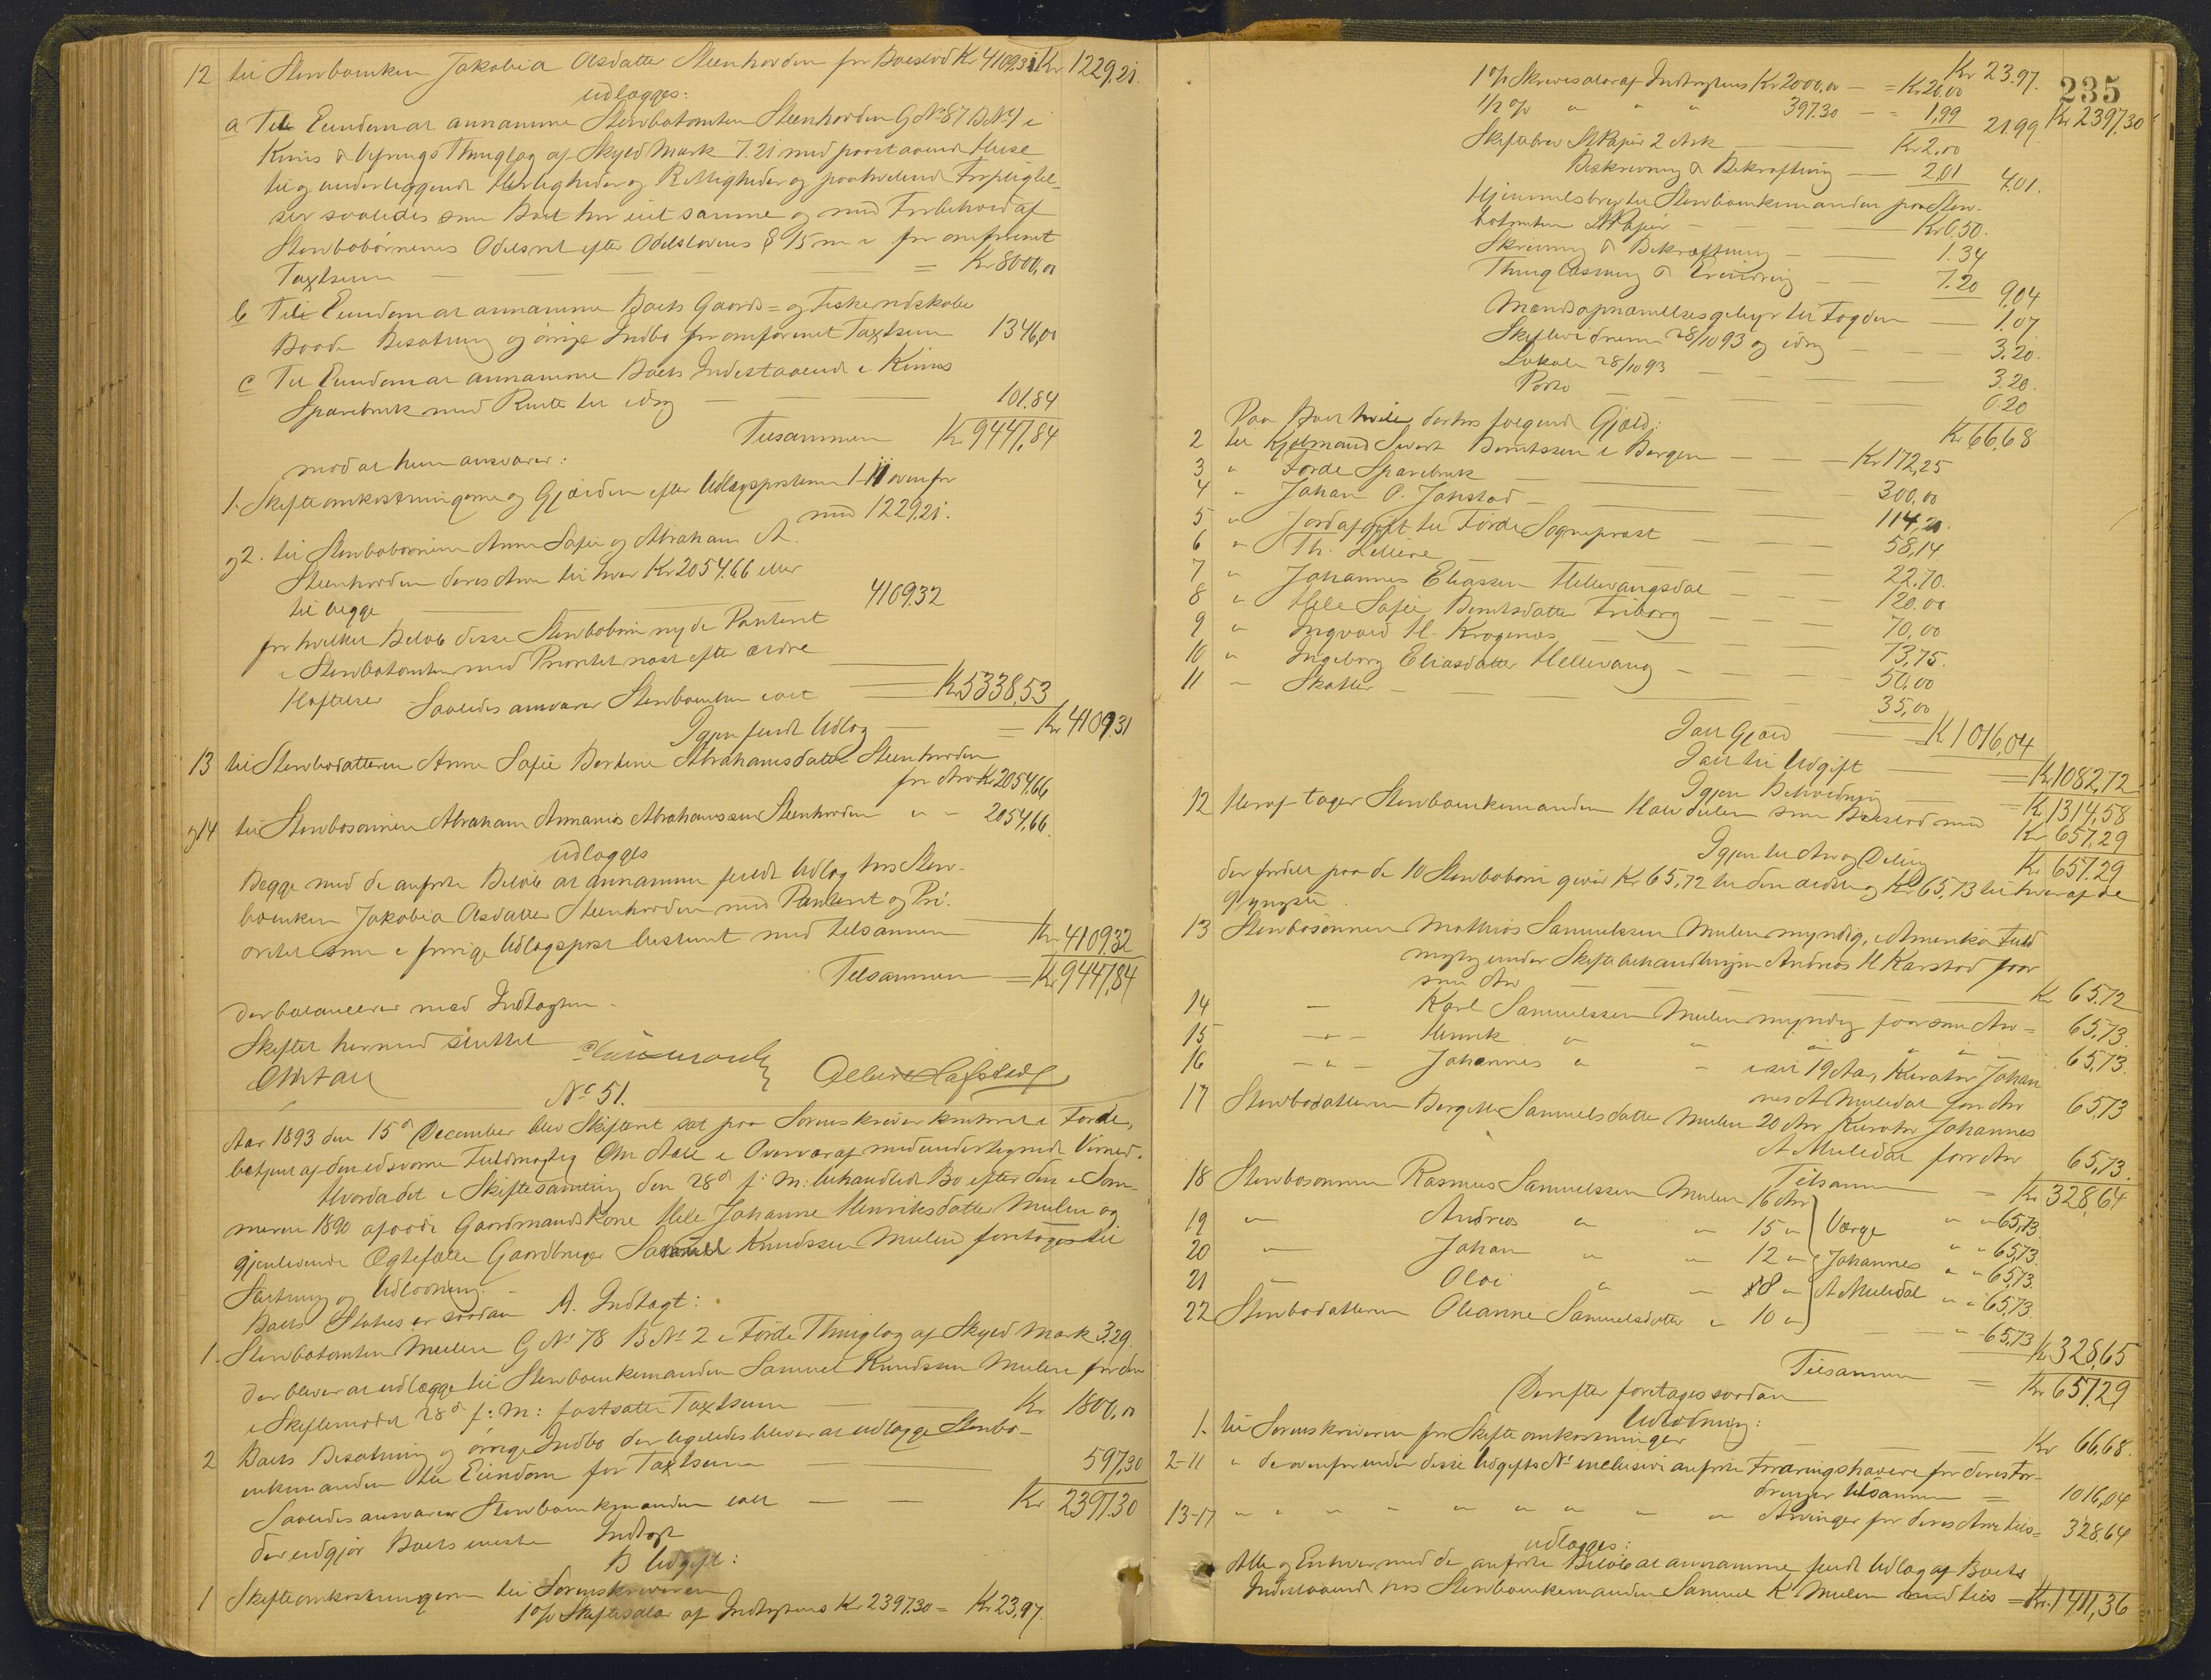 12 til Stervboenken Jakobia Asdatter Steenhovden for Boeslod Kr 4109.31 Kr 1229,21.
udlægges:
a Til Eiendom at annamme Stervbotomten Steenhovden GNo 87 BNo 1 i
Kinns & Vefrings Thinglag af Skyld Mark 7.21 med paastaaende Huse
til og underliggende Herligheder og Rettigheder og paahvilende Forpligtel-
ser saaledes som Boet har eiet samme og med Forbehold af
Stervbobørnenes Odelsret efter Odelslovens § 15 m. v. for omforenet
Taxtsum — = Kr 8000,00
b Til Eiendom at annamme Boets Gaards- og Fiskeredskabe
Baade Besætning og øvrige Indbo for omforenet Taxtsum 1346,00
c Til Eiendom at annamme Boets Indestaaende i Kinns
Sparebank med Rente til idag — 101.84
Tilsammen Kr 9447,84
mod at hun ansvarer:
1. Skifteomkostningerne og Gjælden efter Udlægsposterne 1-11 ovenfor
med 1229,21.
og 2. til Stervbobørnene Anne Sofie og Abraham A.
Steenhovden deres Arv til hver Kr 2054.66 eller
til begge — 4109.32
for hvilket Beløb disse Stervbobørn nyde Panteret
i Stervbotomten med Prioritet næst efter ældre
Hæftelser — Saaledes ansvarer Stervboenken ialt — Kr 5338,53
Igjen fuldt Udlæg — = Kr 4109.31
13 til Stervbodatteren Anne Sofie Bertine Abrahamsdatter Steenhovden
for Arv Kr 2054,66
og 14 til Stervbosønnen Abraham Annanias Abrahamssen Steenhovden " - 2054,66.
udlægges
Begge med de anførte Beløb at annamme fuldt Udlæg hos Sterv-
boenken Jakobia Asdatter Steenhovden med Panteret og Pri-
oritet som i forrige Udlægspost bestemt med tilsammen Kr 4109.32
Tilsammen = Kr 9447,84
der balancerer med Indtægten.
Skiftet hermed sluttet
No 51.
Aar 1893 den 15de December blev Skifteret sat paa Sorenskriverkontoret i Førde,
betjent af den edsvorne Fuldmægtig Chr Aall i Overvær af medundertegnede Vidner.
Hvorda det i Skiftesamling den 28de f: M: behandlede Bo efter den i Som-
meren 1890 afdøde Gaardmandskone Hele Johanne Henriksdatter Mulen og
gjenlevende Ægtefælle Gaardbruger Samuel Knudssen Mulen foretages til
Slutning og Udlodning. —
Boets Status er saadan A. Indtægt:
1. Stervbotomten Mulen GNo 78 BNo 2 i Førde Thinglag af Skyld Mark 3.29.
der bliver at udlægge til Stervboenkemanden Samuel Knudssen Mulen for den
i Skiftemødet 28de f: M: fastsatte Taxtsum — Kr 1800,00
2 Boets Besætning og øvrige Indbo der ligeledes bliver at udlægge Stervbo-
enkemanden til Eiendom for Taxtsum — 597,30
Saaledes ansvarer Stervboenkemanden ialt — Kr 2397.30
der udgjør Boets eneste Indtægt
B Udgift:
1 Skifteomkostningerne til Sorenskriveren
1% Skiftesalær af Indtægtens Kr 2397.30 = Kr 23,97.
235
Kr 23.97. Kr 2397.30
1% Skriversalær af Indtægtens Kr 2000,00 — = Kr 20.00
1/2 % " " " 397.30 — = 1,99 21.99
Skiftebrev St Papir 2 Ark — Kr 2,00
Beskrivning & Bekræftning — 2,01 4,01.
Hjemmelsbrev til Stervboenkemanden paa Sterv-
botomten St Papir — Kr 0.50.
Skrivning & Bekræftning — 1.34
Thinglæsning & Erindring — 7.20 9,04
Mændsopnævnelsesgebyr til Fogden — 1,07
Skiftevidnerne 28/10 93 og idag — 3.20.
Lokale 28/10 93 — 3.20.
Porto — 0.20
Kr 66,68
Paa Boet hviler derhos følgende Gjæld:
2 til Kjøbmand Sivert Berntssen i Bergen — Kr 172,25
3 " Førde Sparebank — 300,00
4 " Johan O. Jonstad — 114,20.
5 " Jordafgift til Førde Sogneprest — 58,14
6 " Th. — 22.70.
7 " Johannes Eliassen Hellevangsdal — 120.00
8 " Hele Sofie Berntsdatter Friborg — 70,00
9 " Ingvald H. Krogenæs — 73,75.
10 " Ingeborg Eliasdatter Hellevang — 50,00
11 " Skatter — 35,00
Ialt Gjæld — Kr 1016,04
Ialt til Udgift — = Kr 1082,72
Igjen Beholdning = Kr 1314,58
12 Heraf tager Stervboenkemanden Halvdelen som Boeslod med Kr 657,29
Igjen til Arv og Deling Kr 657.29
der fordelt paa de 10 Stervbobørn giver Kr 65,72 til den ældste og Kr 65,73 til hver af de
9 yngste.
13 Stervbosønnen Mathias Samuelssen Mulen myndig, i Amerika Fuld
mægtig under Skiftebehandlingen Andreas H Karstad faar
sin Arv — Kr 65.72
14 — Karl Samuelssen Mulen myndig faar sin Arv = 65,73.
15 - " - Henrik " " " " " 65,73.
16 - " - Johannes " " i alt 19 Aar, Kurator Johan
nes A Muledal for Arv 65,73
17 Stervbodatteren Bergitte Samuelsdatter Mulen 20 Aar Kurator Johannes
A Muledal for Arv 65,73.
Tilsammen = Kr 328,64
18 Stervbosønnen Rasmus Samuelssen Mulen 16 Aar " " 65,73
19 " Andreas " " 15 " Værge " " 65,73.
20 " Johan " " 12 " Johannes " " 65,73.
21 " Olai " " 8 " A Muledal " " 65,73.
22 Stervbodatteren Oleanne Samuelsdatter " 10 " — " 65,73 Kr 328,65
Tilsammen = Kr 657.29
Derefter foretages saadan
Udlodning:
1. til Sorenskriveren for Skifteomkostninger — Kr 66,68.
2-11 " de ovenfor under disse Udgifts No inclusive anførte Fordringshavere for deres For-
dringer tilsammen = 1016,04
13-17 " " " " " " " " Arvinger for deres Arv tils = 328,64
udlægges:
Alle og Enhver med de anførte Beløb at annamme fuldt Udlæg af Boets
Indestaaende hos Stervboenkemanden Samuel K. Mulen med tils = Kr. 1411,36